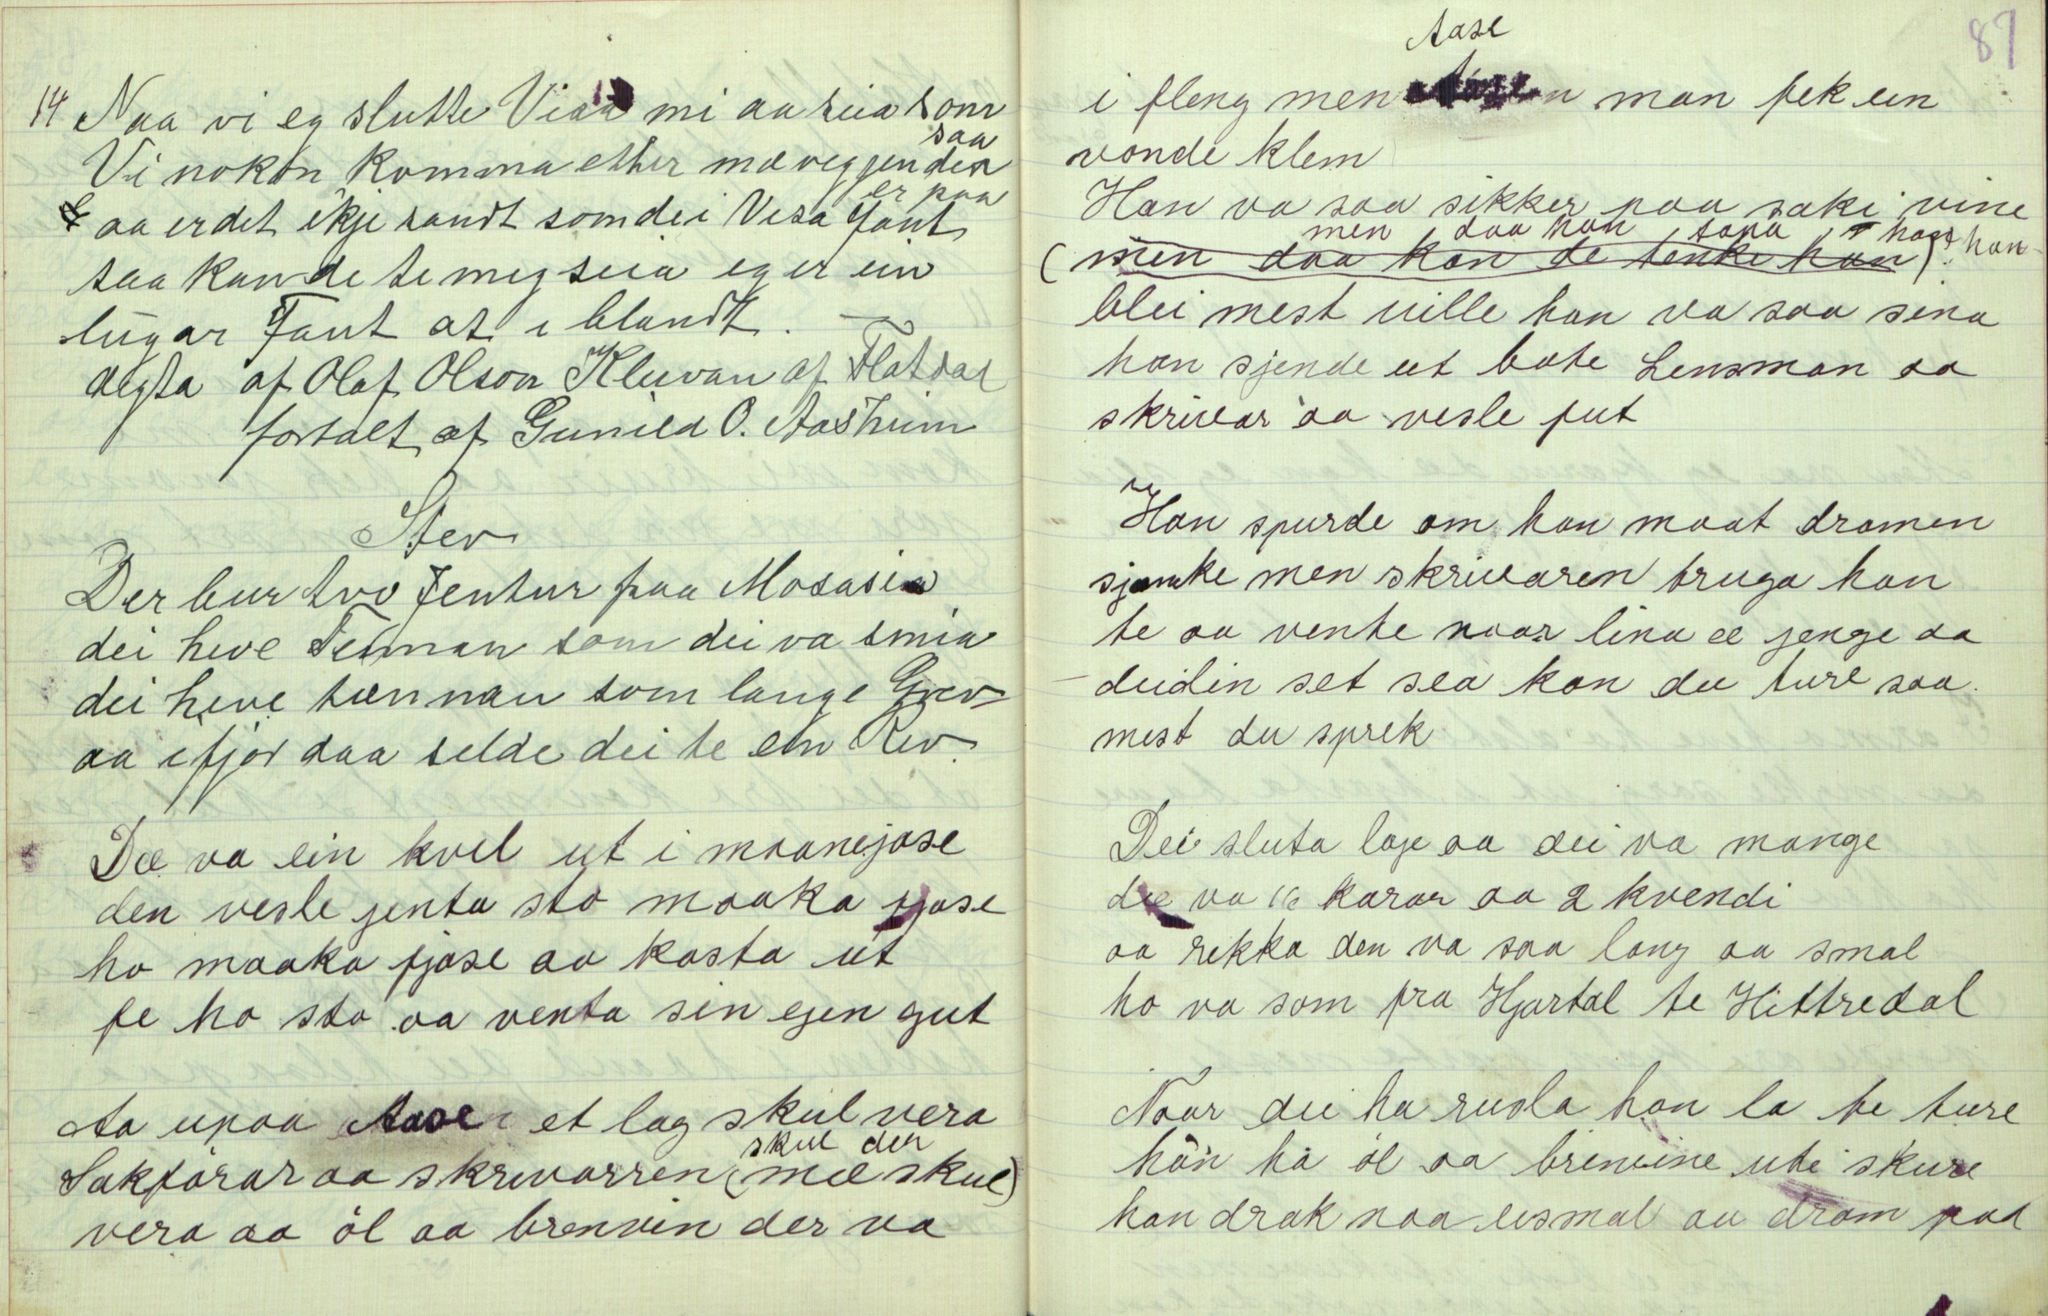 14 Naa vi eg slutte Visa mi aa seia som
saa
Vi nokon komma etter mæ veggjen den
er paa
aa er det ikje sandt som dei Visa fant
saa kan de te meg seia eg er ein
lugar Fant at i blandt. —
degta af Olaf Olson Kluvan af Flatdal
fortalt af Gunild O. Aasheim
Stev
Der bur tvo Jentur paa Mosasia
dei heve Teinnan som dei va smia
dei heve tænnan som lange Grev
aa i fjor daa selde dei te ein Rev.
Dæ va ein kvel ut i maanejase
den vesle jenta sto maaka fjase
ho maaka fjase aa kasta ut
fe ho sto aa venta sin egen gut
Aa upaa Aase et lag skul vera
skul der
Sakförar aa skrivarren (mæ skul)
vera aa öl aa brenvin der va
87
Aase
i fleng men man fek ein
vonde klem
Han va saa sikker paa saki vine
men daa han tapa
(men daa kan de tenke han) han
blei mest uille han va saa sina
han sjende ut baate Lensman aa
skrivar aa vesle put
Han spurde om han maat dramen
sjenke men skrivaren truga han
te aa vente naar lina æ jenge aa
deidin set sea kan du ture saa
mest du sprek
Dei sluta lage aa dei va mange
dæ va 16 karar aa 2 kvendi
aa rekka den va saa lang aa smal
ho va som fra Hjartal te Hittredal
Naar dei ha rusla han la te ture
han ha öl aa brenvine ute i skure
han drak naa eismal aa dram paa